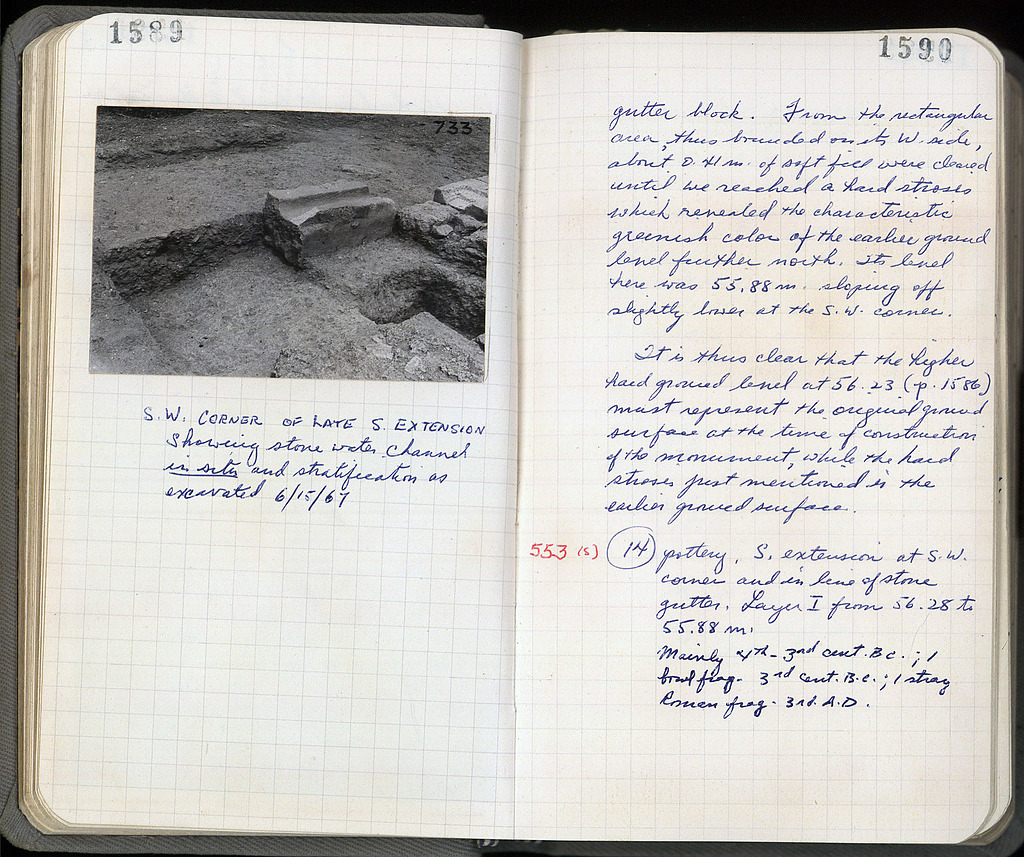 1589
733
S.W. CORNER OF LATE S. EXTENSION
Showing stone water channel
in situ and stratification as
excavated 6/15/67
1590
gutter block. From the rectangular
area, thus bounded on its W. side,
about 0.41 m. of soft fill were cleared
until we reached a hard stroses
which revealed the characteristic
greenish color of the earlier ground
level further north. Its level
here was 55.88 m. sloping off
slightly lower at the S.W. corner.
It is thus clear that the higher
hard ground level at 56.23 (p. 1586)
must represent the original ground
surface at the time of construction
of the monument, while the hard
stroses just mentioned is the
earlier ground surface.
553 (s) 14 pottery, S. extension at S.W.
corner and in line of stone
gutter. Layer I from 56.28 to
55.88 m.
Mainly 4th - 3rd cent. B.C.; 1
bowl frag. 3rd cent. B.C.; 1 stray
Roman frag. 3rd. A.D.